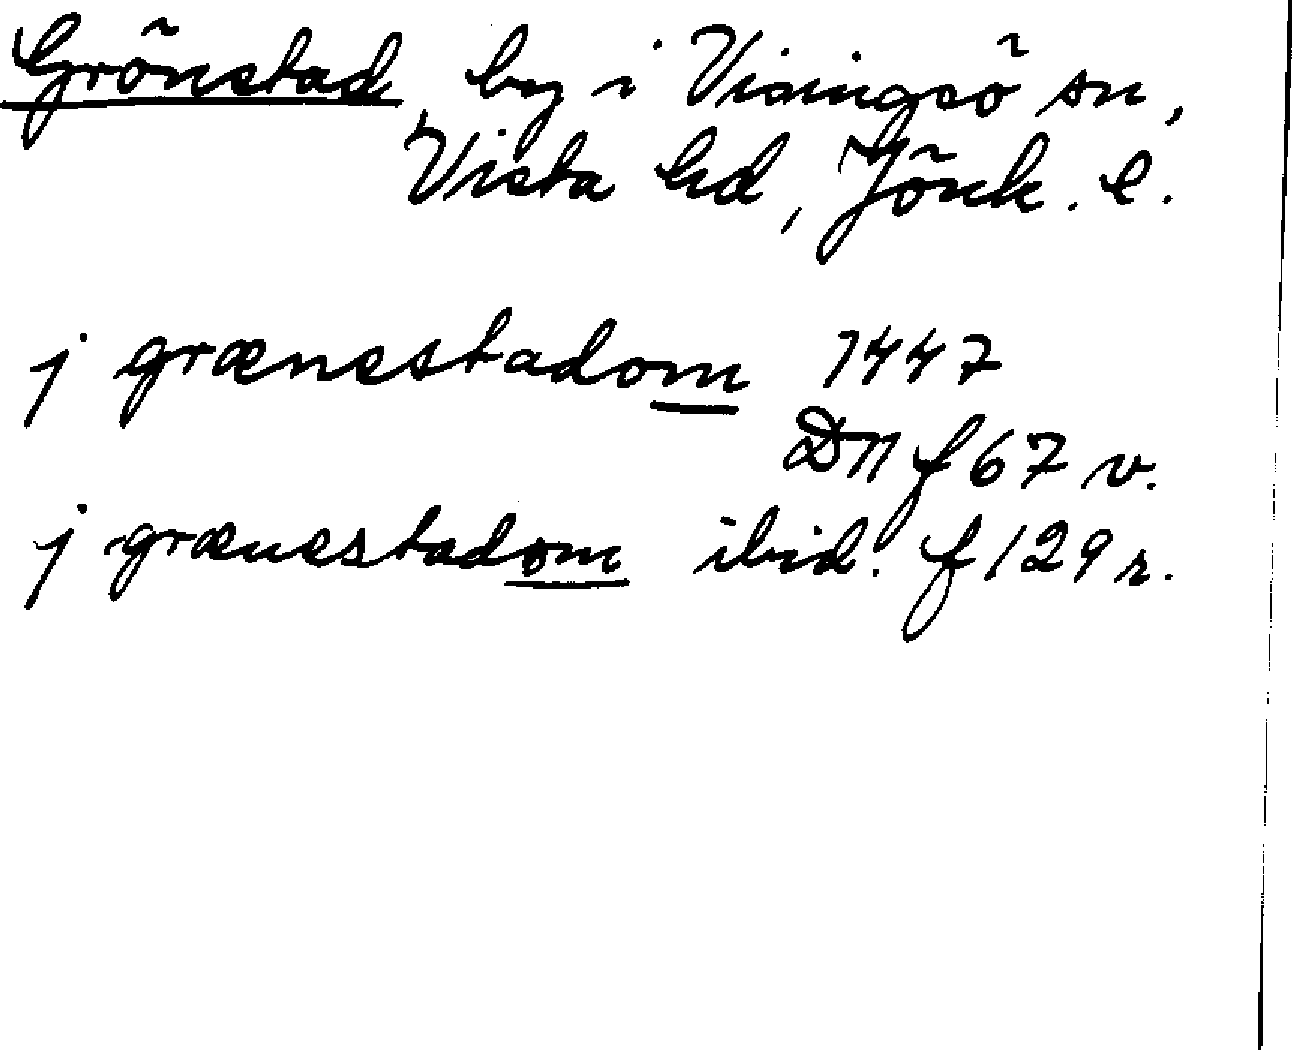 Grönstad, by i Visingsö sn,
Vista hd, Jönk. l.
j grænestadom 1447
D11 f 67 v.
j grænestadom ibid. f 129 r.